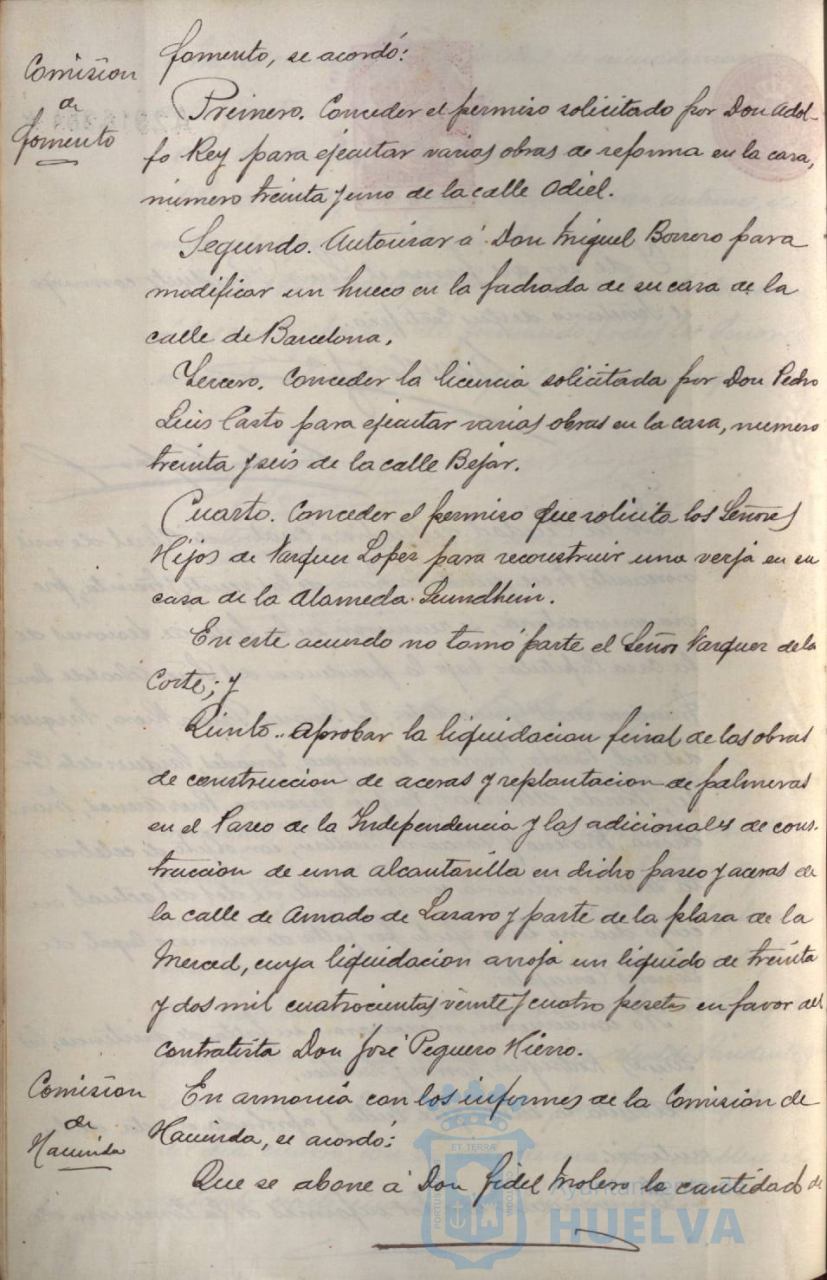 Comision
de
fomento
fomento, se acordó:
Primero. Conceder el permiso solicitado por Don Adol-
fo Rey para ejecutar varias obras de reforma en la casa,
número treinta y uno de la calle Odiel.
Segundo. Autorizar á Don Miguel Borrero para
modificar un hueco en la fachada de su casa de la
calle de Barcelona.
Tercero. Conceder la licencia solicitada por Don Pedro
Luis Casto para ejecutar varias obras en la casa, numero
treinta y seis de la calle Bejar.
Cuarto. Conceder el permiso que solicita los Señores
Hijos de Vazquez Lopez para reconstruir una verja en su
casa de la Alameda Sundhein.
En este acuerdo no tomó parte el Señor Vazquez de la
Corte; y
Quinto.. Aprobar la liquidacion final de las obras
de construccion de aceras y replantacion de palmeras
en el Paseo de la Independencia y las adicionales de cons-
truccion de una alcantarilla en dicho paseo y aceras de
la calle de Amado de Lazaro y parte de la plaza de la
Merced, cuya liquidacion arroja un liquido de treinta
y dos mil cuatrocientas veinte y cuatro pesetas en favor del
contratista Don José Peguero Hierro.
Comision
de
Hacienda
En armonía con los informes de la Comision de
Hacienda, se acordó:
Que se abone á Don Fidel Molero la cantidad de
Ayuntamiento de
HUELVA